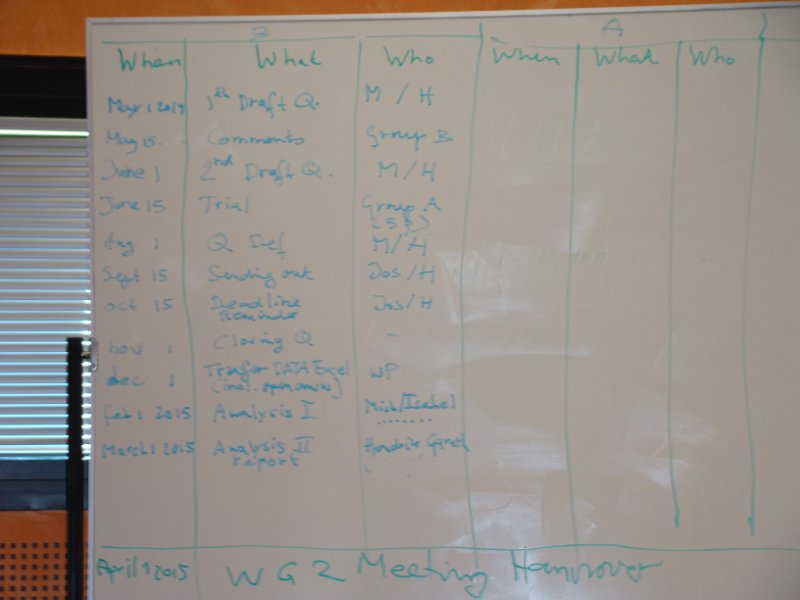 B A
When What Who When What Who
May 1 2014 1th Draft Q. M / H
May 15. Comments Group B
June 1 2nd Draft Q. M/H
June 15 Trial Group A
Aug 1 Q Def M/H
Sept 15 Sending out Jos/H
oct 15 Deadline Jos/H
Reminder
nov 1 Closing Q -
dec 1 Transfer DATA Excel WP
(incl.
Feb 1 2015 Analysis I Mich/Isabel
March 1 2015 Analysis II Hendrik, Gareth
report
April 1 2015 WG2 Meeting Hannover